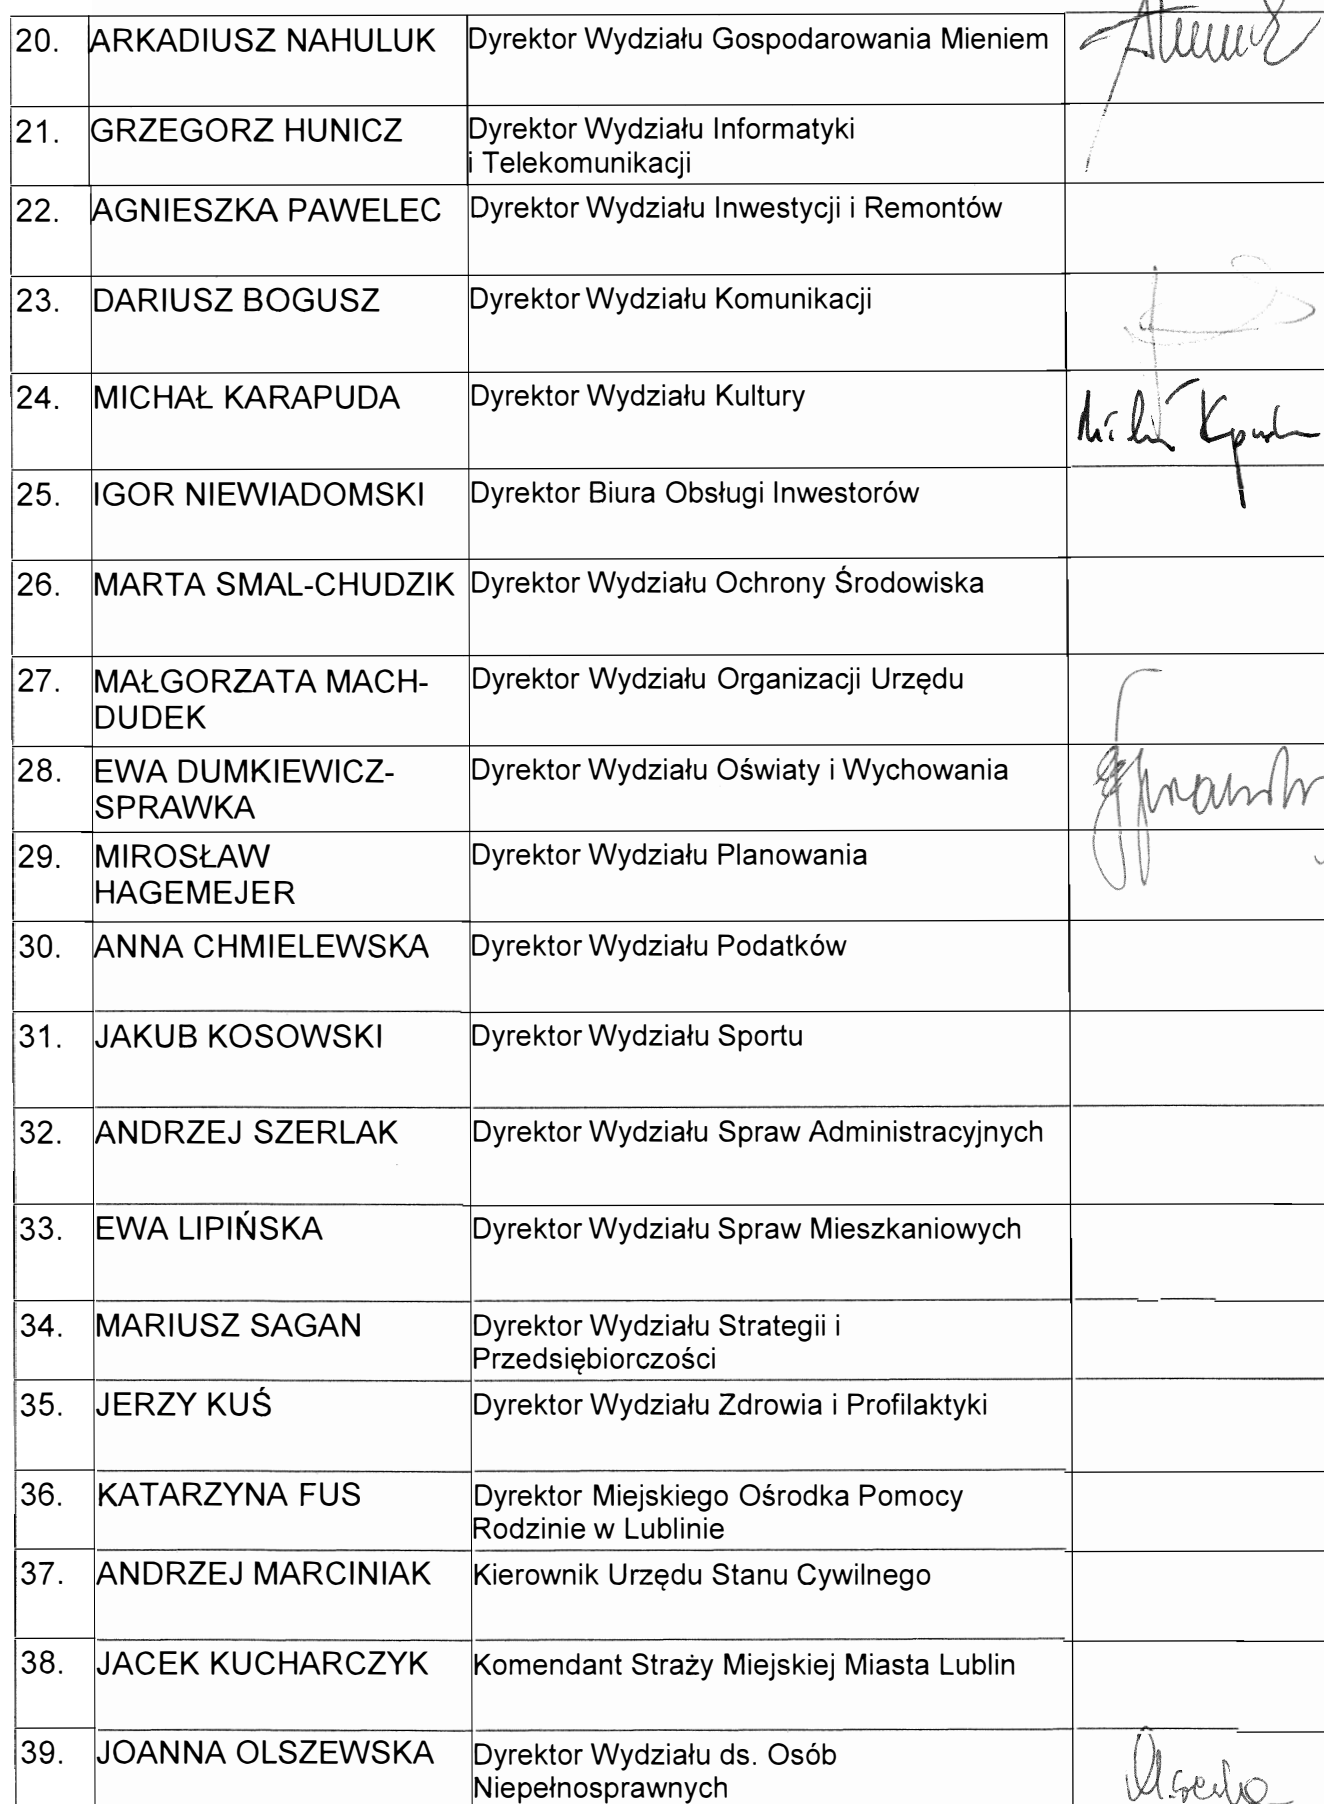 20. ARKADIUSZ NAHULUK Dyrektor Wydziału Gospodarowania Mieniem
21. GRZEGORZ HUNICZ Dyrektor Wydziału Informatyki
i Telekomunikacji
22. AGNIESZKA PAWELEC Dyrektor Wydziału Inwestycji i Remontów
23. DARIUSZ BOGUSZ Dyrektor Wydziału Komunikacji
24. MICHAŁ KARAPUDA Dyrektor Wydziału Kultury
25. IGOR NIEWIADOMSKI Dyrektor Biura Obsługi Inwestorów
26. MARTA SMAL-CHUDZIK Dyrektor Wydziału Ochrony Środowiska
27. MAŁGORZATA MACH- Dyrektor Wydziału Organizacji Urzędu
DUDEK
28. EWA DUMKIEWICZ- Dyrektor Wydziału Oświaty i Wychowania
SPRAWKA
29. MIROSŁAW Dyrektor Wydziału Planowania
HAGEMEJER
30. ANNA CHMIELEWSKA Dyrektor Wydziału Podatków
31. JAKUB KOSOWSKI Dyrektor Wydziału Sportu
32. ANDRZEJ SZERLAK Dyrektor Wydziału Spraw Administracyjnych
33. EWA LIPIŃSKA Dyrektor Wydziału Spraw Mieszkaniowych
34. MARIUSZ SAGAN Dyrektor Wydziału Strategii i
Przedsiębiorczości
35. JERZY KUŚ Dyrektor Wydziału Zdrowia i Profilaktyki
36. KATARZYNA FUS Dyrektor Miejskiego Ośrodka Pomocy
Rodzinie w Lublinie
37. ANDRZEJ MARCINIAK Kierownik Urzędu Stanu Cywilnego
38. JACEK KUCHARCZYK Komendant Straży Miejskiej Miasta Lublin
39. JOANNA OLSZEWSKA Dyrektor Wydziału ds. Osób
Niepełnosprawnych